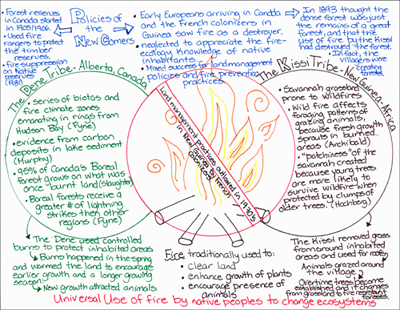 Policies of
the
New Comers
- Forest reserves
in Canada started
in 1905/1906.
- Used fire
rangers to protect
the timber
reserves.
- Fire suppression
in Native
reserves
- Early Europeans arriving in Canada
and the french colonizers in
Guinea saw fire as a destroyer.
- neglected to appreciate the fire-
ecology knowledge of native
inhabitants.
- Mixed success for land management
policies and fire prevention
practices
- In 1893 thought the
dense forest was just
the remains of a great
forest, and that the
use of fire by the Kissi
had destroyed the forest.
- In fact, the
villagers were
creating
forests.
The Dene Tribe - Alberta, Canada
- series of biotas and
fire climate zones
emanating in rings from
Hudson Bay (Pyne)
- evidence from carbon
deposits in lake sediment
(Murphy)
- 95% of Canada's Boreal
forest grows on what was
once "burnt land" (Slaughter)
- Boreal forests receive a
greater # of lightning
strikes then other
regions (Pyne)
land management practices outlawed in 1930's
The Kissi Tribe - New Guinea, Africa
- Savannah grassland
prone to wildfires
- Wild fire affects
foraging patterns of
grazing animals,
because fresh growth
sprouts in burned
areas (Archibald)
- "patchiness" of the
savannah created
because young trees
are more likely to
survive wildfires when
protected by clumps of
older trees. (Hochberg)
The Dene used controlled
burns to protect inhabited areas
Burns happened in the spring
and warmed the land to encourage
earlier growth and a longer growing
season
New growth attracted animals
Fire traditionally used to:
clear land
enhance growth of plants
encourage presence of
animals
The Kissi removed grass
from around inhabited
areas and used for roofs
Animals grazed around
the village
Overtime trees become
established and it changes
from grassland to
forests
Universal Use of fire by native peoples to change ecosystems